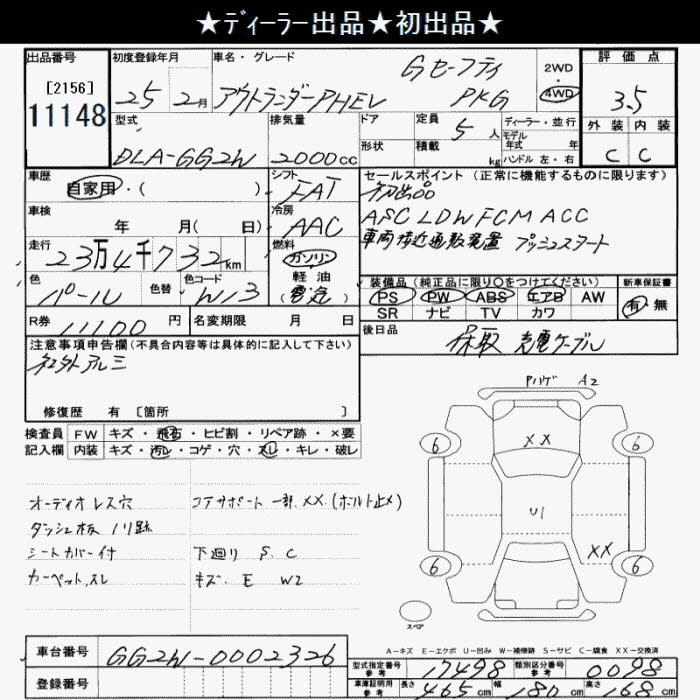 ★ディーラー出品★初出品★
出品番号 初度登録年月 車名・グレード 評価点
[2156]
11148
25 2月 アウトランダーPHEV Gセーフティ PKG 2WD 4WD 3.5
型式 排気量 ドア 定員 5人 ディーラー・並行 外装 内装
モデル年式 年
DLA-GG2W 2000cc 形状 積載 kg ハンドル 左・右 C C
車歴 シフト セールスポイント(正常に機能するものに限ります)
自家用・( ) FAT 初出品
車検 冷房 ASC LDW FCM ACC
年 月(日) AAC 車両接近通報装置 プッシュスタート
走行 燃料
23万4千732km ガソリン
軽油
電気
色 色替 色コード 装備品(純正品に限り○をつけてください) 新車保証書
パール W13 PS PW ABS エアB AW 有 無
SR ナビ TV カワ
R券 11100円 名変期限 月 日 後日品
保取 充電ケーブル
注意事項申告欄(不具合内容等は具体的に記入して下さい)
社外アルミ
修復歴 有 [箇所 ]
検査員 FW キズ・飛石・ヒビ割・リペア跡・×要
記入欄 内装 キズ・汚レ・コゲ・穴・スレ・キレ・破レ
オーディオレス穴 コアサポート一部XX(ボルト止メ)
ダッシュ板 ノリ跡
シートカバー付 下廻り S.C
カーペットスレ キズ E W2
Pハゲ A2
XX
6 6
U1
XX
6 6
スペア
A-キズ E-エクボ U-凹み W-補修跡 S-サビ C-腐食 XX-交換済
車台番号 GG2W-0002326
登録番号
型式指定番号 参考 17498 類別区分番号 参考 0098
車庫証明用 参考 長さ 465cm 幅 180cm 高さ 168cm